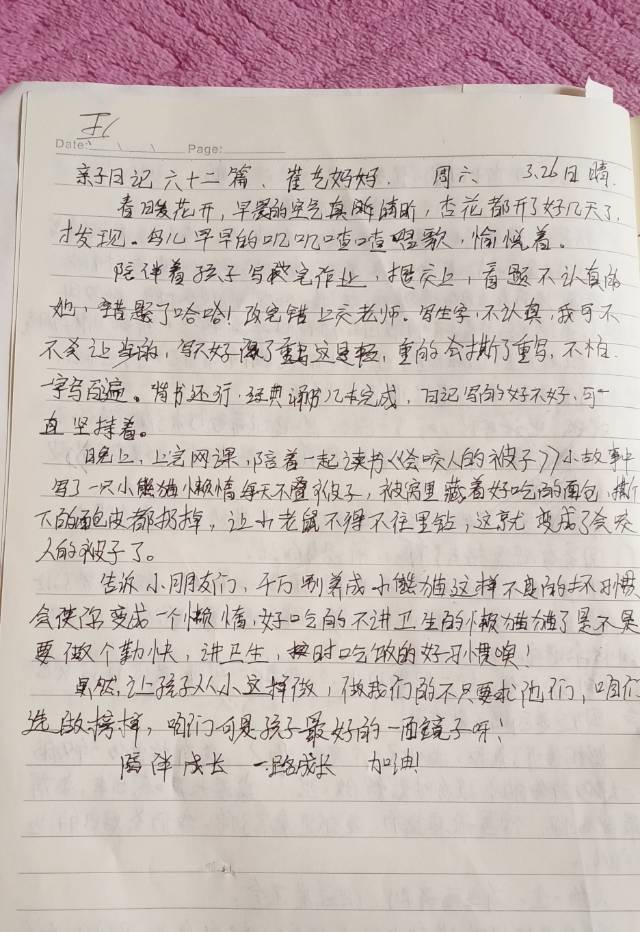 Date: Page:
亲子日记 六十二篇、崔艺妈妈. 周六 3.26日晴.
春日暖花开，早晨的空气真 清晰，杏花都开了好几天了，
才发现。鸟儿早早的叽叽喳喳唱歌，愉悦着。
陪伴着孩子写完作业，提交上，看题不认真的
她，错题了哈哈！改完错上交老师。写生字，不认真，我可不
不会让步的，写不好 了 这是轻，重的会撕了重写，不怕
一字写百遍。背书还行，经典诵 几本完成，日记写的好不好，可一
直坚持着。
晚上，上完网课，陪着一起读书《会咬人的被子》小故事中
写了一只小熊猫懒惰每天不叠被子，被窝里藏着好吃的面包，撕
下的面包皮都扔掉，让小老鼠不得不往里钻，这就变成了会咬
人的被子了。
告诉小朋友们，千万别养成小熊猫这样不良的坏习惯
会使你变成一个懒惰，好吃的不讲卫生的懒猫猫了是不是
要做个勤快，讲卫生，按时吃饭的好习惯噢！
虽然让孩子从小这样做，做我们的不只要求他们，咱们
先做榜样，咱们可是孩子最好的一面镜子呀！
陪伴成长 一路成长 加油！